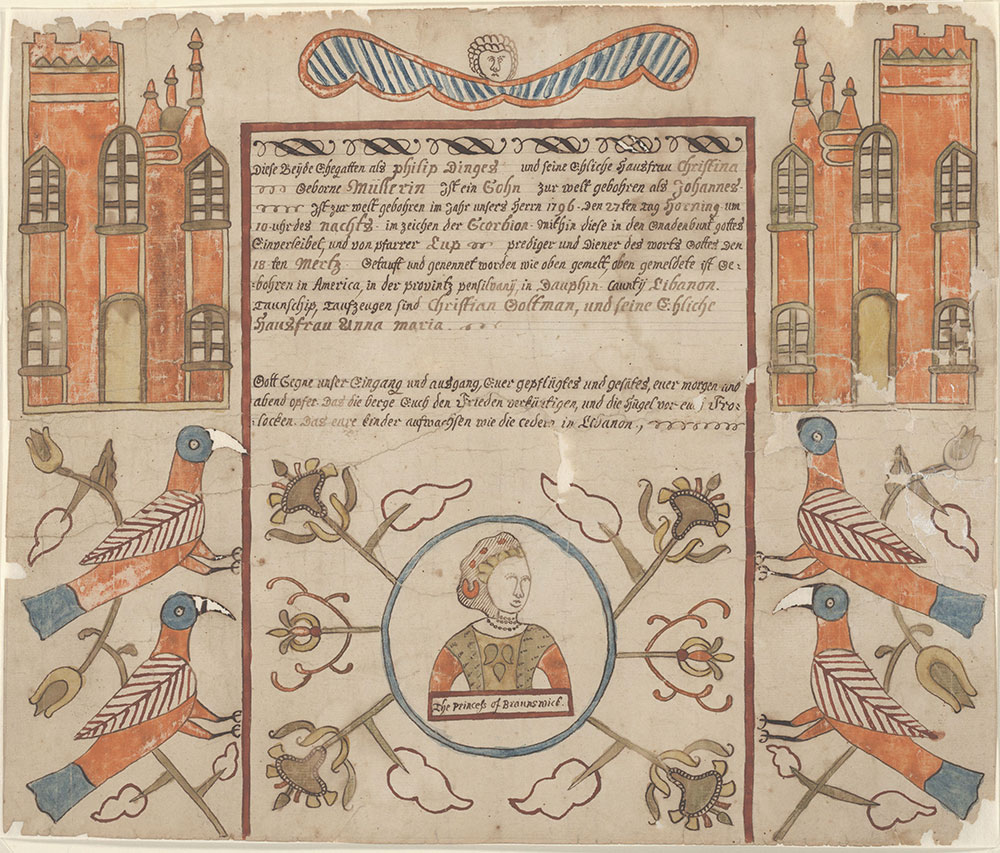 Diese Beÿde Ehegatten als philip Dinges und seine Ehliche Hausfrau Christina
Geborne Müllerin Ist ein Sohn zur welt gebohren als Johannes.
Ist zur welt gebohren im Jahr unsers Herrn 1796. Den 27ten Tag Horning um
10 uhr des nachts. im zeichen der Scorbion. Mithin diese in den Gnadenbunt gottes
Einverleibet, und von pfarrer Lup prediger und Diener des worts Gottes Den
18 ten Mertz. Getauft und genennet worden wie oben gemelt oben gemeldete ist Ge-
bohren in America, in der provintz pensilvanÿ, in Dauphin. Countÿ Libanon.
Taunschip, Taufzeugen sind Christian Goltman, und seine Ehliche
Hausfrau Anna maria.
Gott Segne unser Eingang und ausgang, Euer gepflügtes und gesätes, euer morgen und
abend opfer. Das die berge Euch den Frieden verkürtigen, und die Hügel vor euch Fro-
locken. Das eure kinder aufwachsen wie die ceder in Libanon.,
The Princeſs of Braunswick.